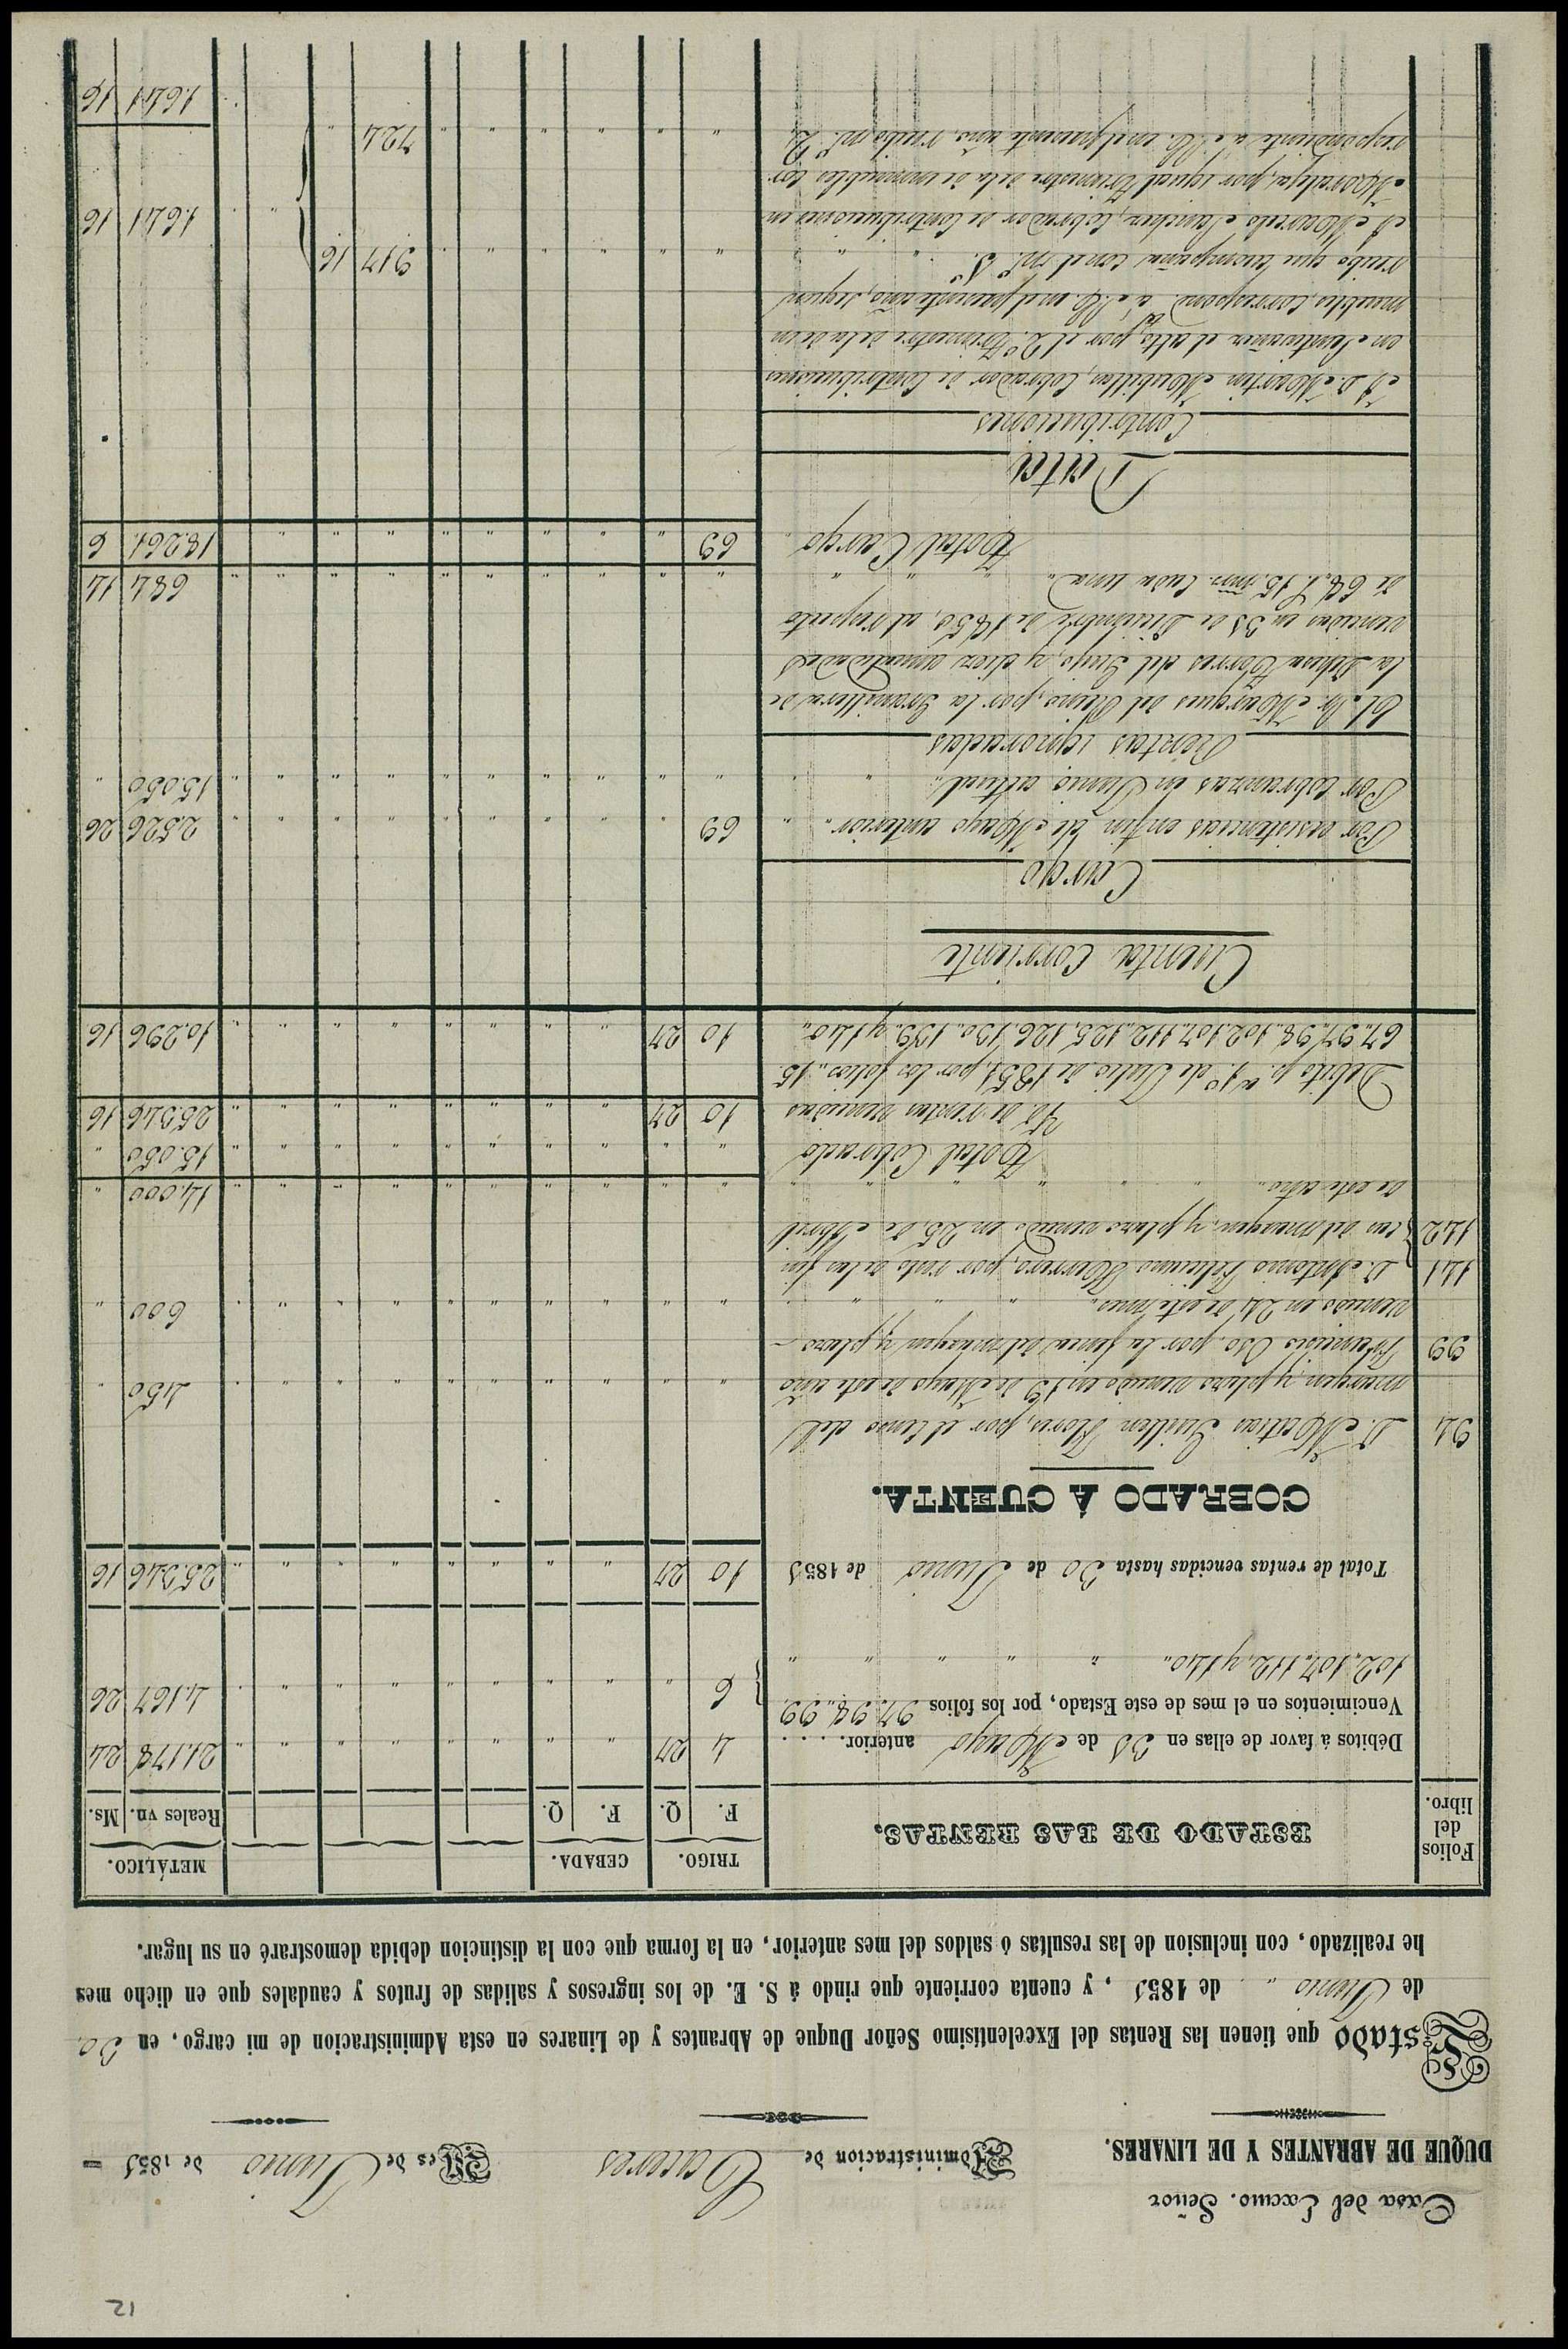 21
Casa del Excmo. Señor
DUQUE DE ABRANTES Y DE LINARES.
Administracion de Caceres
Mes de Junio de 1851 =
Estado que tienen las Rentas del Excelentísimo Señor Duque de Abrantes y de Linares en esta Administracion de mi cargo, en 30
de Junio „ de 1851 , y cuenta corriente que rindo á S. E. de los ingresos y salidas de frutos y caudales que en dicho mes
he realizado, con inclusion de las resultas ó saldos del mes anterior, en la forma que con la distincion debida demostraré en su lugar.
Folios del libro. ESTADO DE LAS RENTAS. TRIGO. CEBADA. METÁLICO.
F. Q. F. Q. Reales vn. Ms.
Débitos á favor de ellas en 31 de Mayo anterior. . . . 4 27 „ „ „ „ „ „ „ 21.178 24
Vencimientos en el mes de este Estado, por los folios 97. 98. 99.
102. 107. 112. y 140. „ „ „ „ „ 6 „ „ „ „ „ „ „ 4.167 26
Total de rentas vencidas hasta 30 de Junio de 1851 10 27 „ „ „ „ „ „ „ 25.346 16
COBRADO Á CUENTA.
94 D. Matias Guillen Flores, por el censo del
margen y plazo vencido en 19 de Mayo de este año „ „ „ „ „ „ „ 450 „
99 Francisco Oso, por la finca del margen y plazo
vencido en 24 de este mes. „ „ „ „ „ „ „ 600 „
141 D. Antonio Feliciano Marrero, por resto de las fin
142 cas del margen, y plazo vencido en 25 de Abril
de este año. „ „ „ „ „ „ „ 14.000 „
Total Cobrado „ „ „ „ „ „ „ 15.050 „
Yd. de rentas vencidas 10 27 „ „ „ „ „ „ „ 25.346 16
Débito p.ª 1.º de Julio de 1851, por los folios „ 15.
67. 97. 98. 102. 107. 112. 125. 126. 130. 139. y 140. 10 27 „ „ „ „ „ „ „ 10.296 16
Cuenta Corriente
Cargo
Por existencias en fin de Mayo anterior „ „ 69 „ „ „ „ „ „ „ „ 2.526 26
Por cobranzas en Junio actual. „ „ „ „ „ „ „ „ „ 15.050 „
Rentas ignoradas
El Sr. Marques del Reino, por la Gramillera de
la Dehesa Torres del Lujo, y diez anualidades
vencidas en 31 de Diciembre de 1850, al respecto
de 68 r. 15 mrs. cada una „ „ „ „ „ „ „ 684 14
Total Cargo 69 „ „ „ „ „ „ „ „ 18.261. 6
Data
Contribuciones
A D. Martin Mubillas, Cobrador de Contribuciones
en Santibañez el alto, por el 2.º Trimestre de la de in
muebles, correspond.te á S. E. en el presente año, segun
recibo que acompaña con el n.º 1.º „ „ „ „ „ „ „ 917 16
A Marcelo Sanchez, Cobrador de Contribuciones en
Moraleja, por igual Trimestre de la de inmuebles cor
respondiente á S. E. en el presente año, recibo n.º 2. „ „ „ „ „ „ 724 „
1.641 16
1.641 16